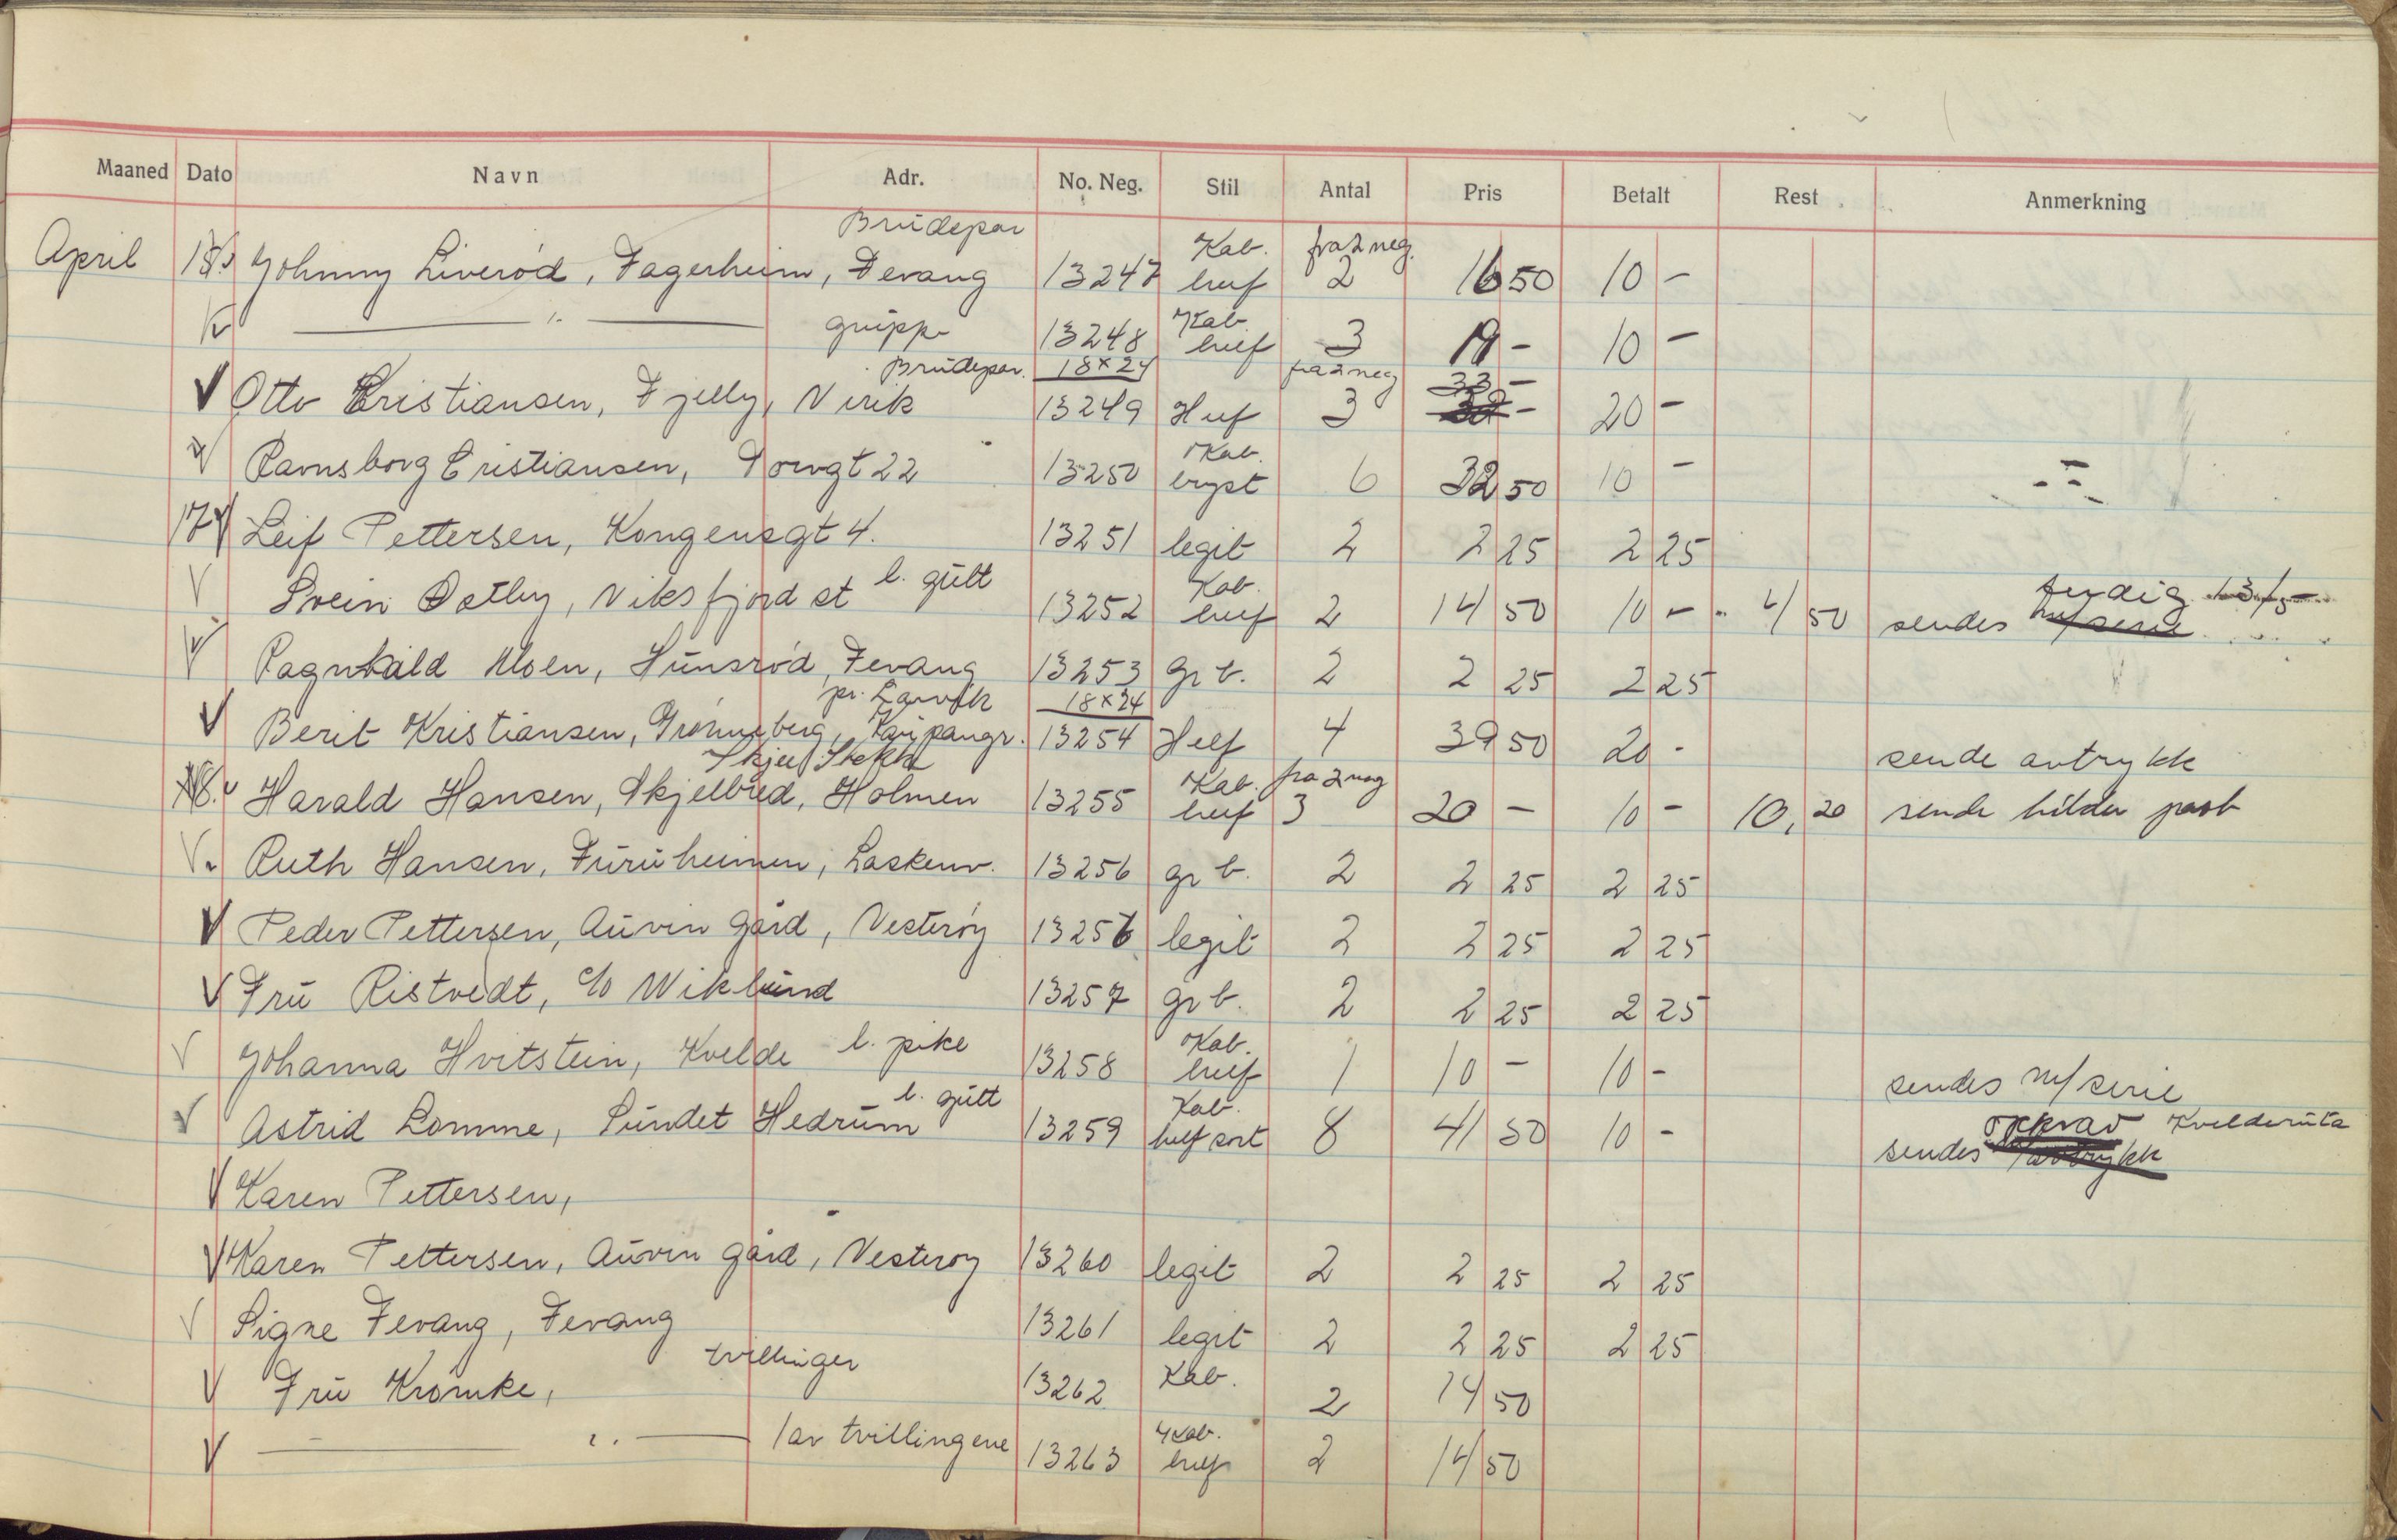 Maaned Dato Navn Adr. No. Neg. Stil Antal Pris Betalt Rest Anmerkning
Brudepar
April 15. Johnny Liverød, Fagerheim, Fevang 13247 Kab. huf fra 2 neg. 2 16 50 10 -
" gruppe 13248 Kab huf 3 19 - 10 -
Brudepar. 18x24 fra 2 neg 33 -
Otto Kristiansen, Fjelly, Virik 13249 Huf 3 20 -
Ravnsborg Cristiansen, Torvgt 22 13250 Kab. bryst 6 32 50 10 -
17 Leif Pettersen, Kongensgt 4. 13251 legit 2 2 25 2 25
Svein Østby, Viksfjord st l. gutt 13252 Kab. huf 2 14 50 10 - 4 50 sendes m/serie ferdig 13/5
Ragnhild Moen, Hunsrød, Fevang 13253 gr b. 2 2 25 2 25
pr. Larvik 18x24
Berit Kristiansen, Grønneberg, Kaupangr. 13254 Helf 4 39 50 20 - sende avtrykk
Skjee Stokke
18. Harald Hansen, Skjelbred, Holmen 13255 Kab. huf fra 2 neg 3 20 - 10 - 10, 20 sende bilder post
Ruth Hansen, Furuheimen, Laskenv. 13256 gr b. 2 2 25 2 25
Peder Pettersen, Auvin gård, Vesterøy 13256 legit 2 2 25 2 25
Fru Ristvedt, c/o Wiklund 13257 gr b. 2 2 25 2 25
Johanna Hvitstein, Kvelde l. pike 13258 Kab. huf 1 10 - 10 - sendes m/serie
Astrid Lomme, Sundet Hedrum l. gutt 13259 Kab. helf sort 8 41 50 10 - sendes avtrykk oppkrav Kvelderuta
Karen Pettersen,
Karen Pettersen, Auvin gård, Vesterøy 13260 legit 2 2 25 2 25
Signe Fevang, Fevang 13261 legit 2 2 25 2 25
Fru Krømke, tvillinger 13262 Kab. 2 14 50
" 1 av tvillingene 13263 Kab. huf 2 14 50